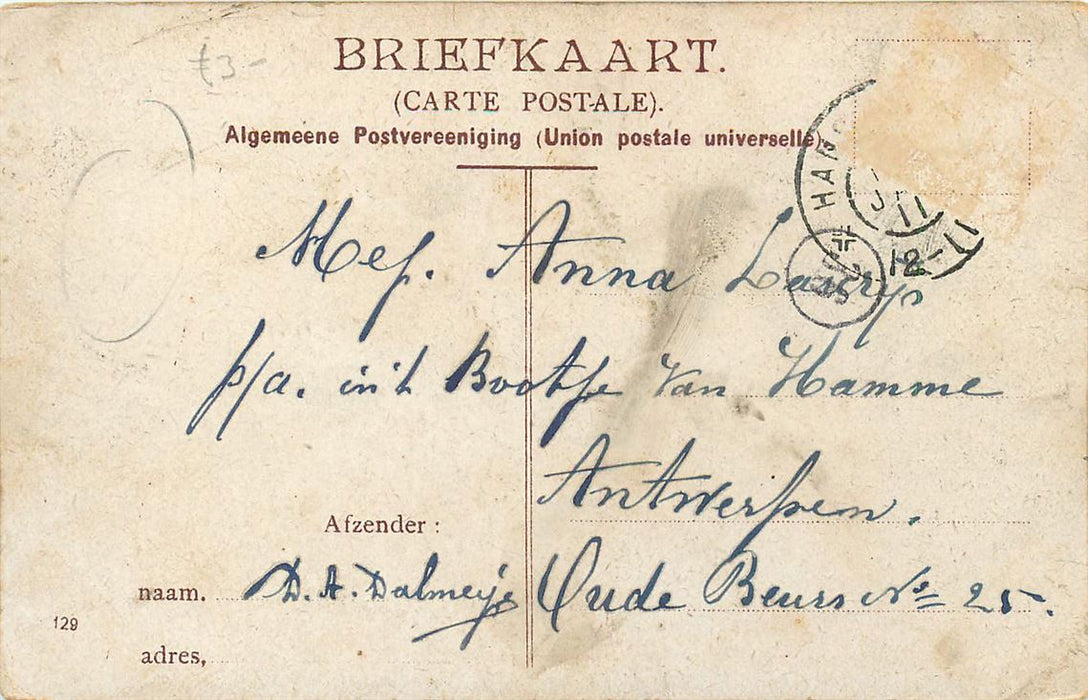 £3-
BRIEFKAART.
(CARTE POSTALE).
Algemeene Postvereeniging (Union postale universelle)
HAN
11
12-11
Mej. Anna
p/a. in 't Bootje Van Hamme
Antwerpen.
Oude Beurs No 25.
Afzender:
naam. D. A. Dalmeije
adres,
129